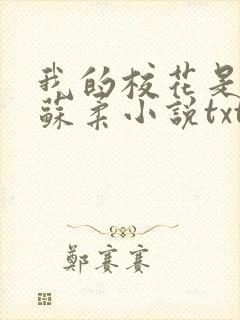 我的校花是
蘇柔小説txt
鄭賽賽